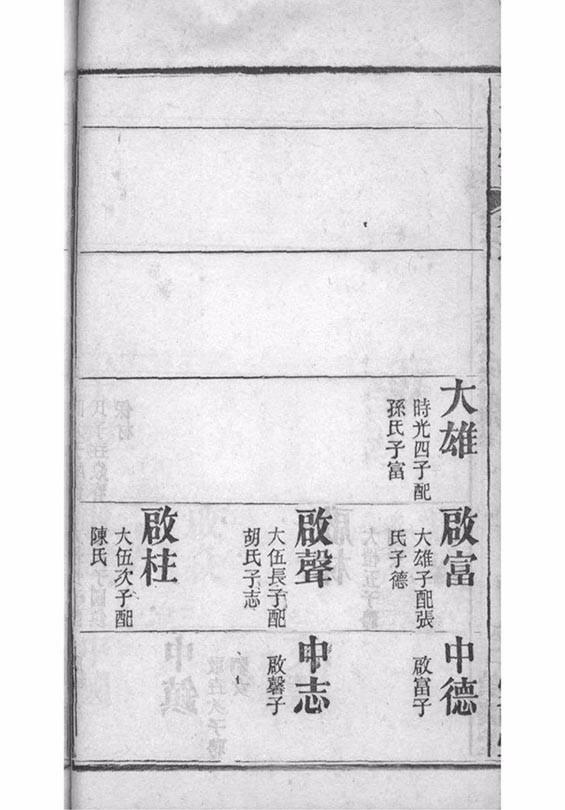 大雄
時光四子配
孫氏子富
啟富
大雄子配張
氏子德
中德
啟富子
啟聲
大伍長子配
胡氏子志
中志
啟馨子
啟柱
大伍次子配
陳氏